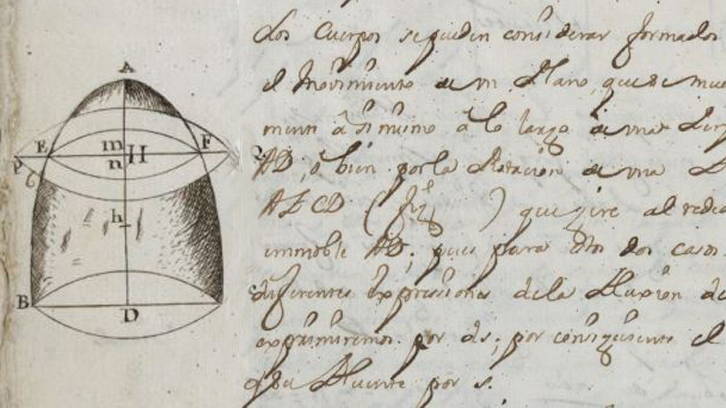 Los Cuerpos se pueden considerar formados
el Movimiento de un Plano, que se mue
mem.te â si mismo â lo largo de una Lin
AD, ô bien por la Rotacion de una
ABCD (fig.) que gire al reded
immoble AD; pues para estos dos casos
diferentes expressiones de la Fluxion de
exprimiremos por ds; por consiguiente el
que su Fluente por s.
A
E
m
H
F
P
n
G
h
B
D